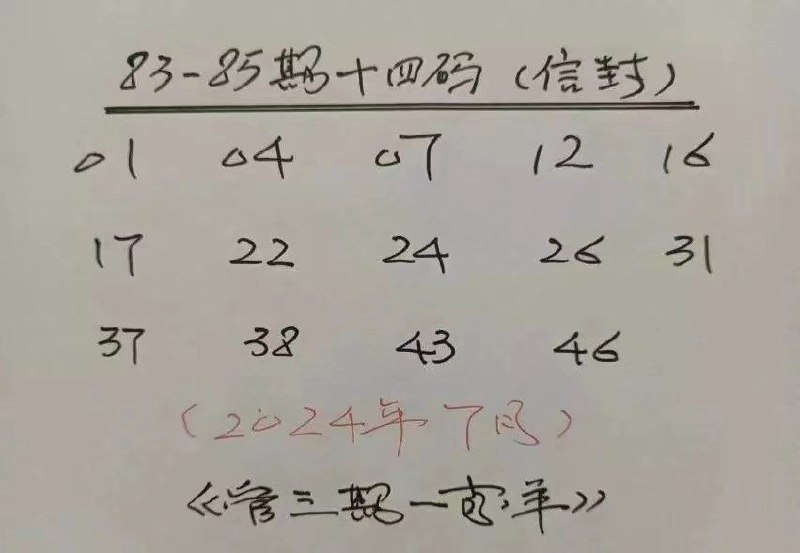 83-85期十四码（信封）
01 04 07 12 16
17 22 24 26 31
37 38 43 46
（2024年7月）
《管三期一肖:羊》